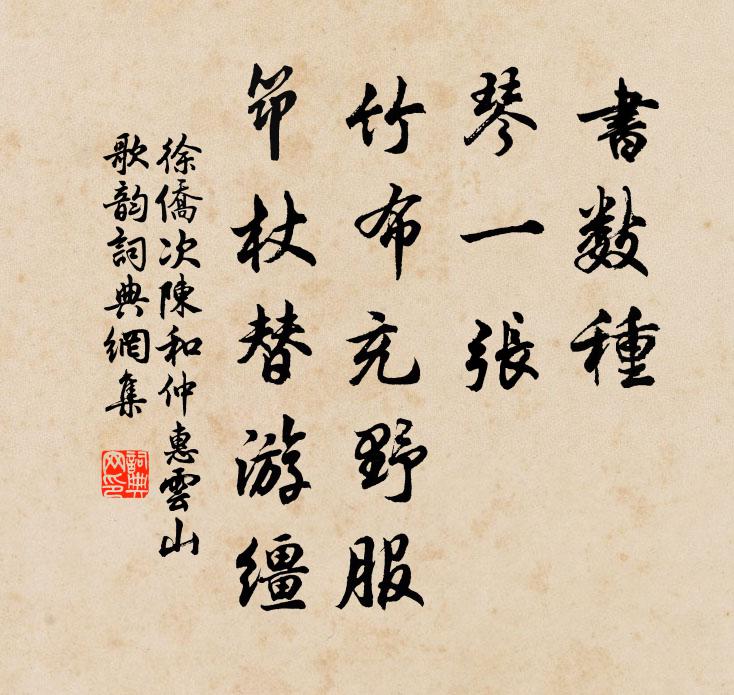 書數種
琴一張
竹布充野服
筇杖替游繮
徐僑次陳和仲惠雲山
歌韵詞典網集
詞典
网印